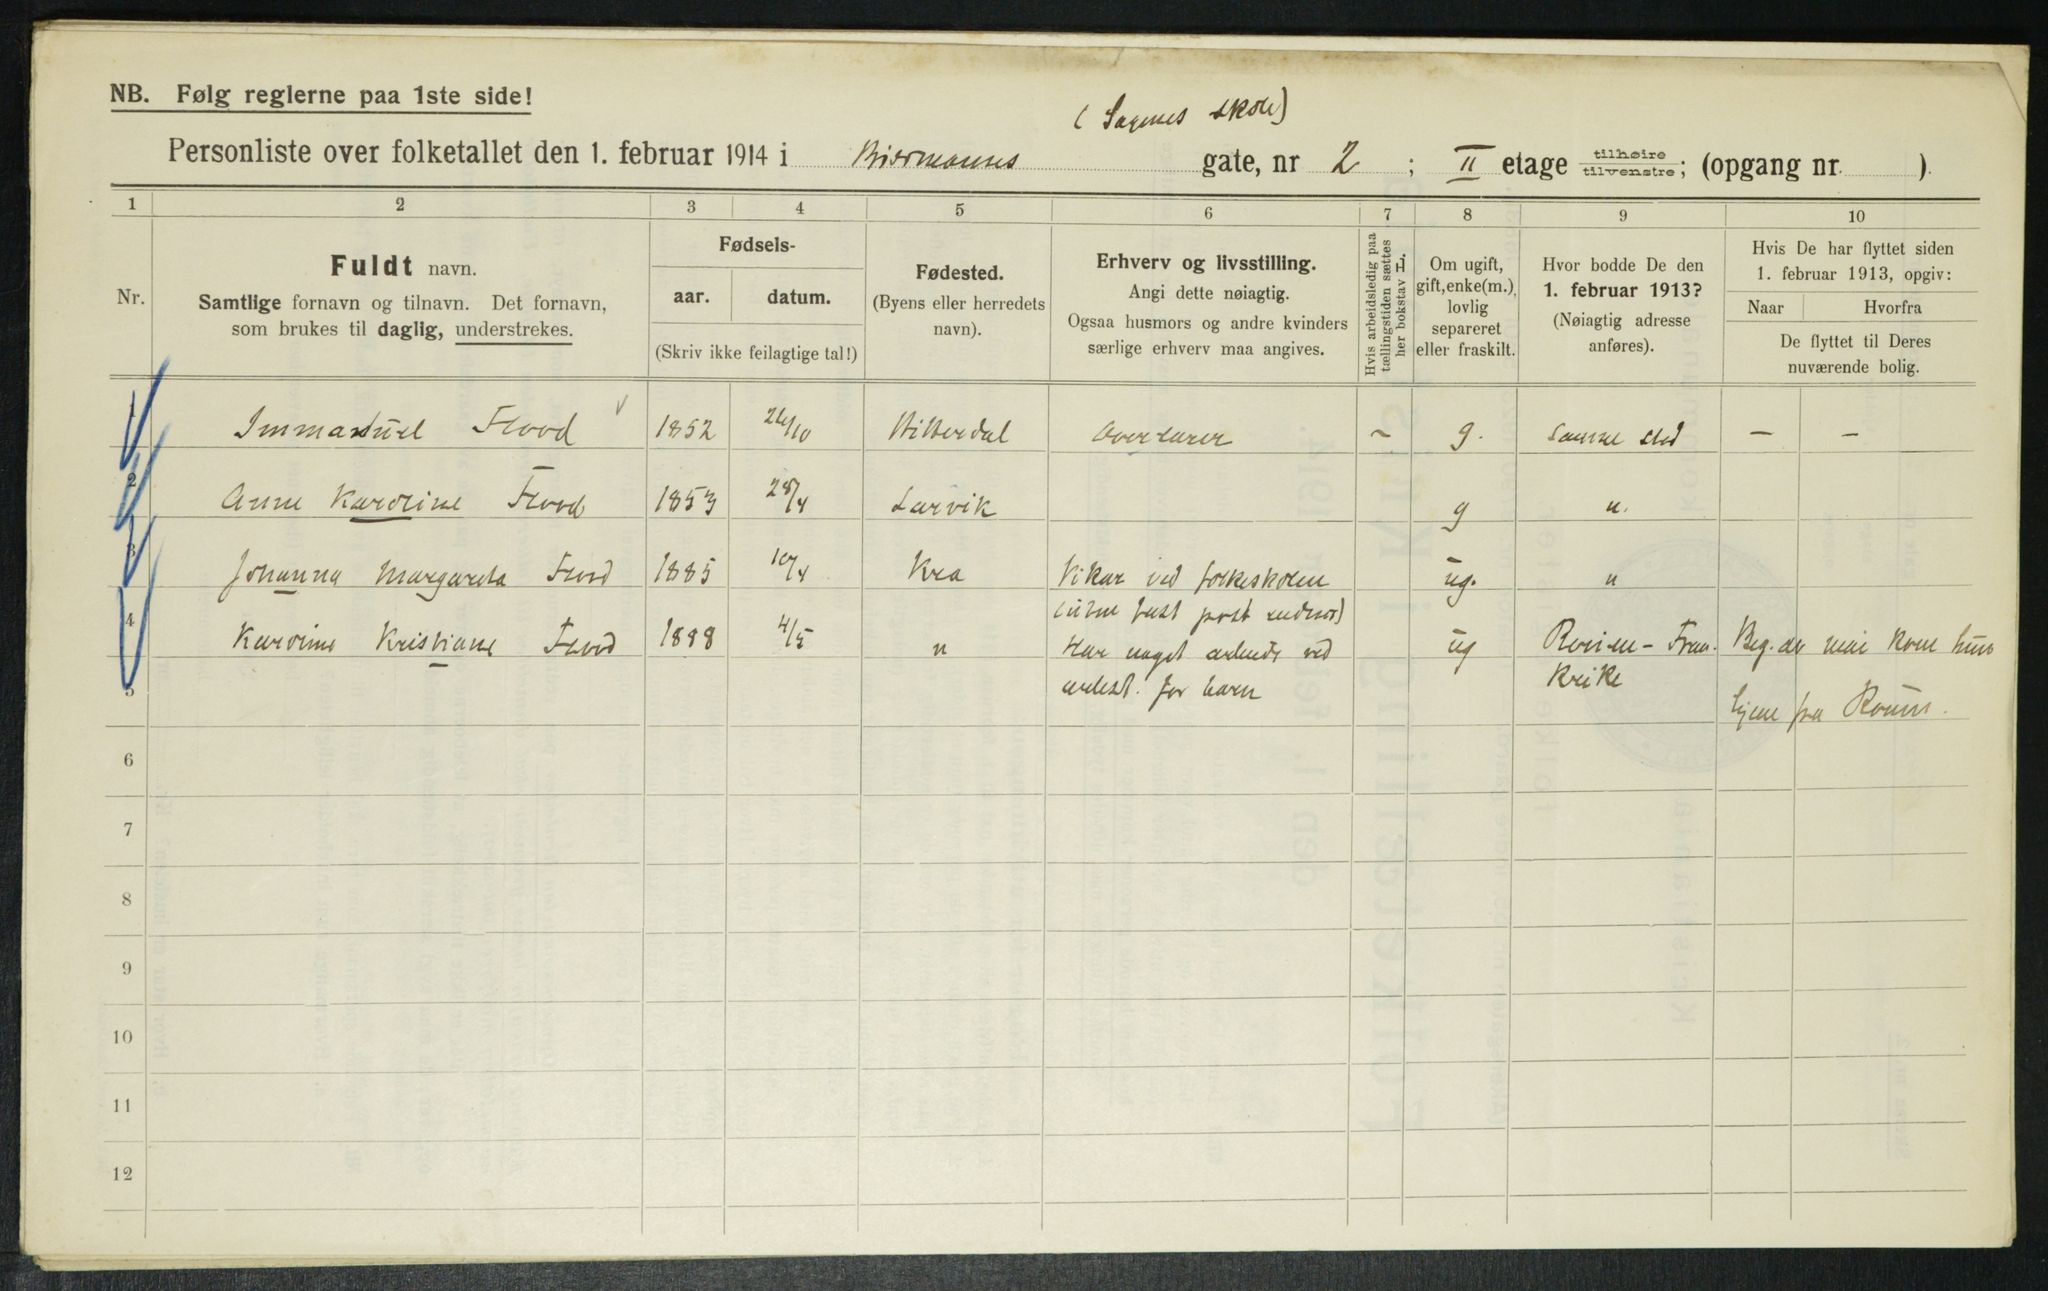 NB. Følg reglerne paa 1ste side!
(Sagenes skole)
Personliste over folketallet den 1. februar 1914 i Biermanns gate, nr 2 ; II etage tilhøire tilvenstre; (opgang nr. ).
1 2 3 4 5 6 7 8 9 10
Nr.
Fuldt navn.
Samtlige fornavn og tilnavn. Det fornavn,
som brukes til daglig, understrekes.
Fødsels-
aar. datum.
(Skriv ikke feilagtige tal!)
Fødested.
(Byens eller herredets
navn).
Erhverv og livsstilling.
Angi dette nøiagtig.
Ogsaa husmors og andre kvinders
særlige erhverv maa angives.
Hvis arbeidsledig paa
tællingstiden sættes
her bokstav H.
Om ugift,
gift, enke(m.),
lovlig
separeret
eller fraskilt.
Hvor bodde De den
1. februar 1913?
(Nøiagtig adresse
anføres).
Hvis De har flyttet siden
1. februar 1913, opgiv:
Naar Hvorfra
De flyttet til Deres
nuværende bolig.
1 Immanuel Flood 1852 26/10 Hitterdal Overlærer ~ g. samme sted — —
2 Anne Karoline Flood 1853 28/4 Larvik g u.
3 Johanna Margareta Flood 1885 10/4 Kra Vikar ved folkeskolen ug. u
(uten fast post endnu)
4 Karoline Kristiane Flood 1888 4/5 u Har noget arbeide ved ug Rouen - Fran- Beg. av mai kom hun
5 for barn krike hjem fra Rouen.
6
7
8
9
10
11
12